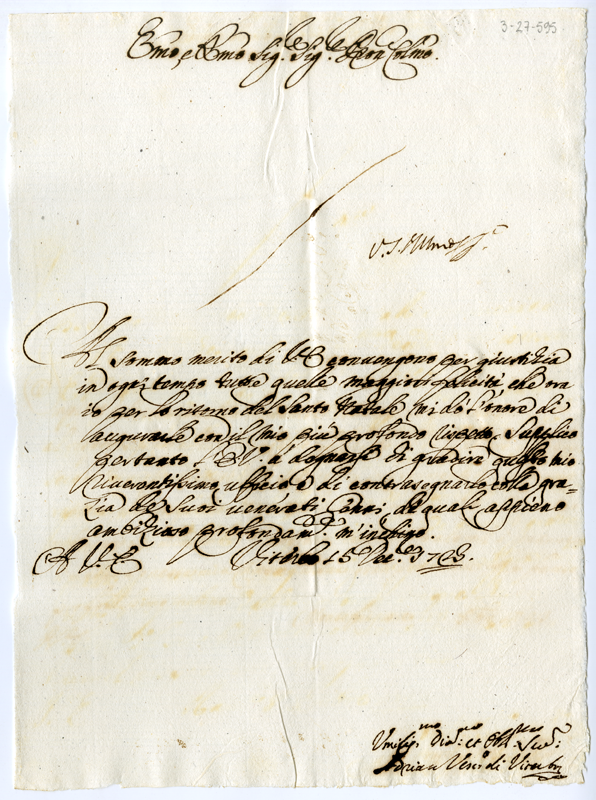 3-27-595
Emo, e Rmo Sig.re Sig.re Pron Colmo.
Al sommo merito di V.E. convengono per giustizia
in ogni tempo tutte quelle maggiori felicità che ora
io per lo ritorno del Santo Natale mi dò l'onore di
laugurarle con il mio più profondo rispetto, Supplico
pertanto l'E.V. à degnarsi di gradire questo mio
riverentissimo ufficio e di contrasegnarlo colla gra=
zia de suoi venerati
ambizioso profondam.te m'inchino.
A V.E. Viterbo 15 Dec.e 1703.
Umiliss.mo et Obl.mo
Adriano Vesc.o di Viterbo